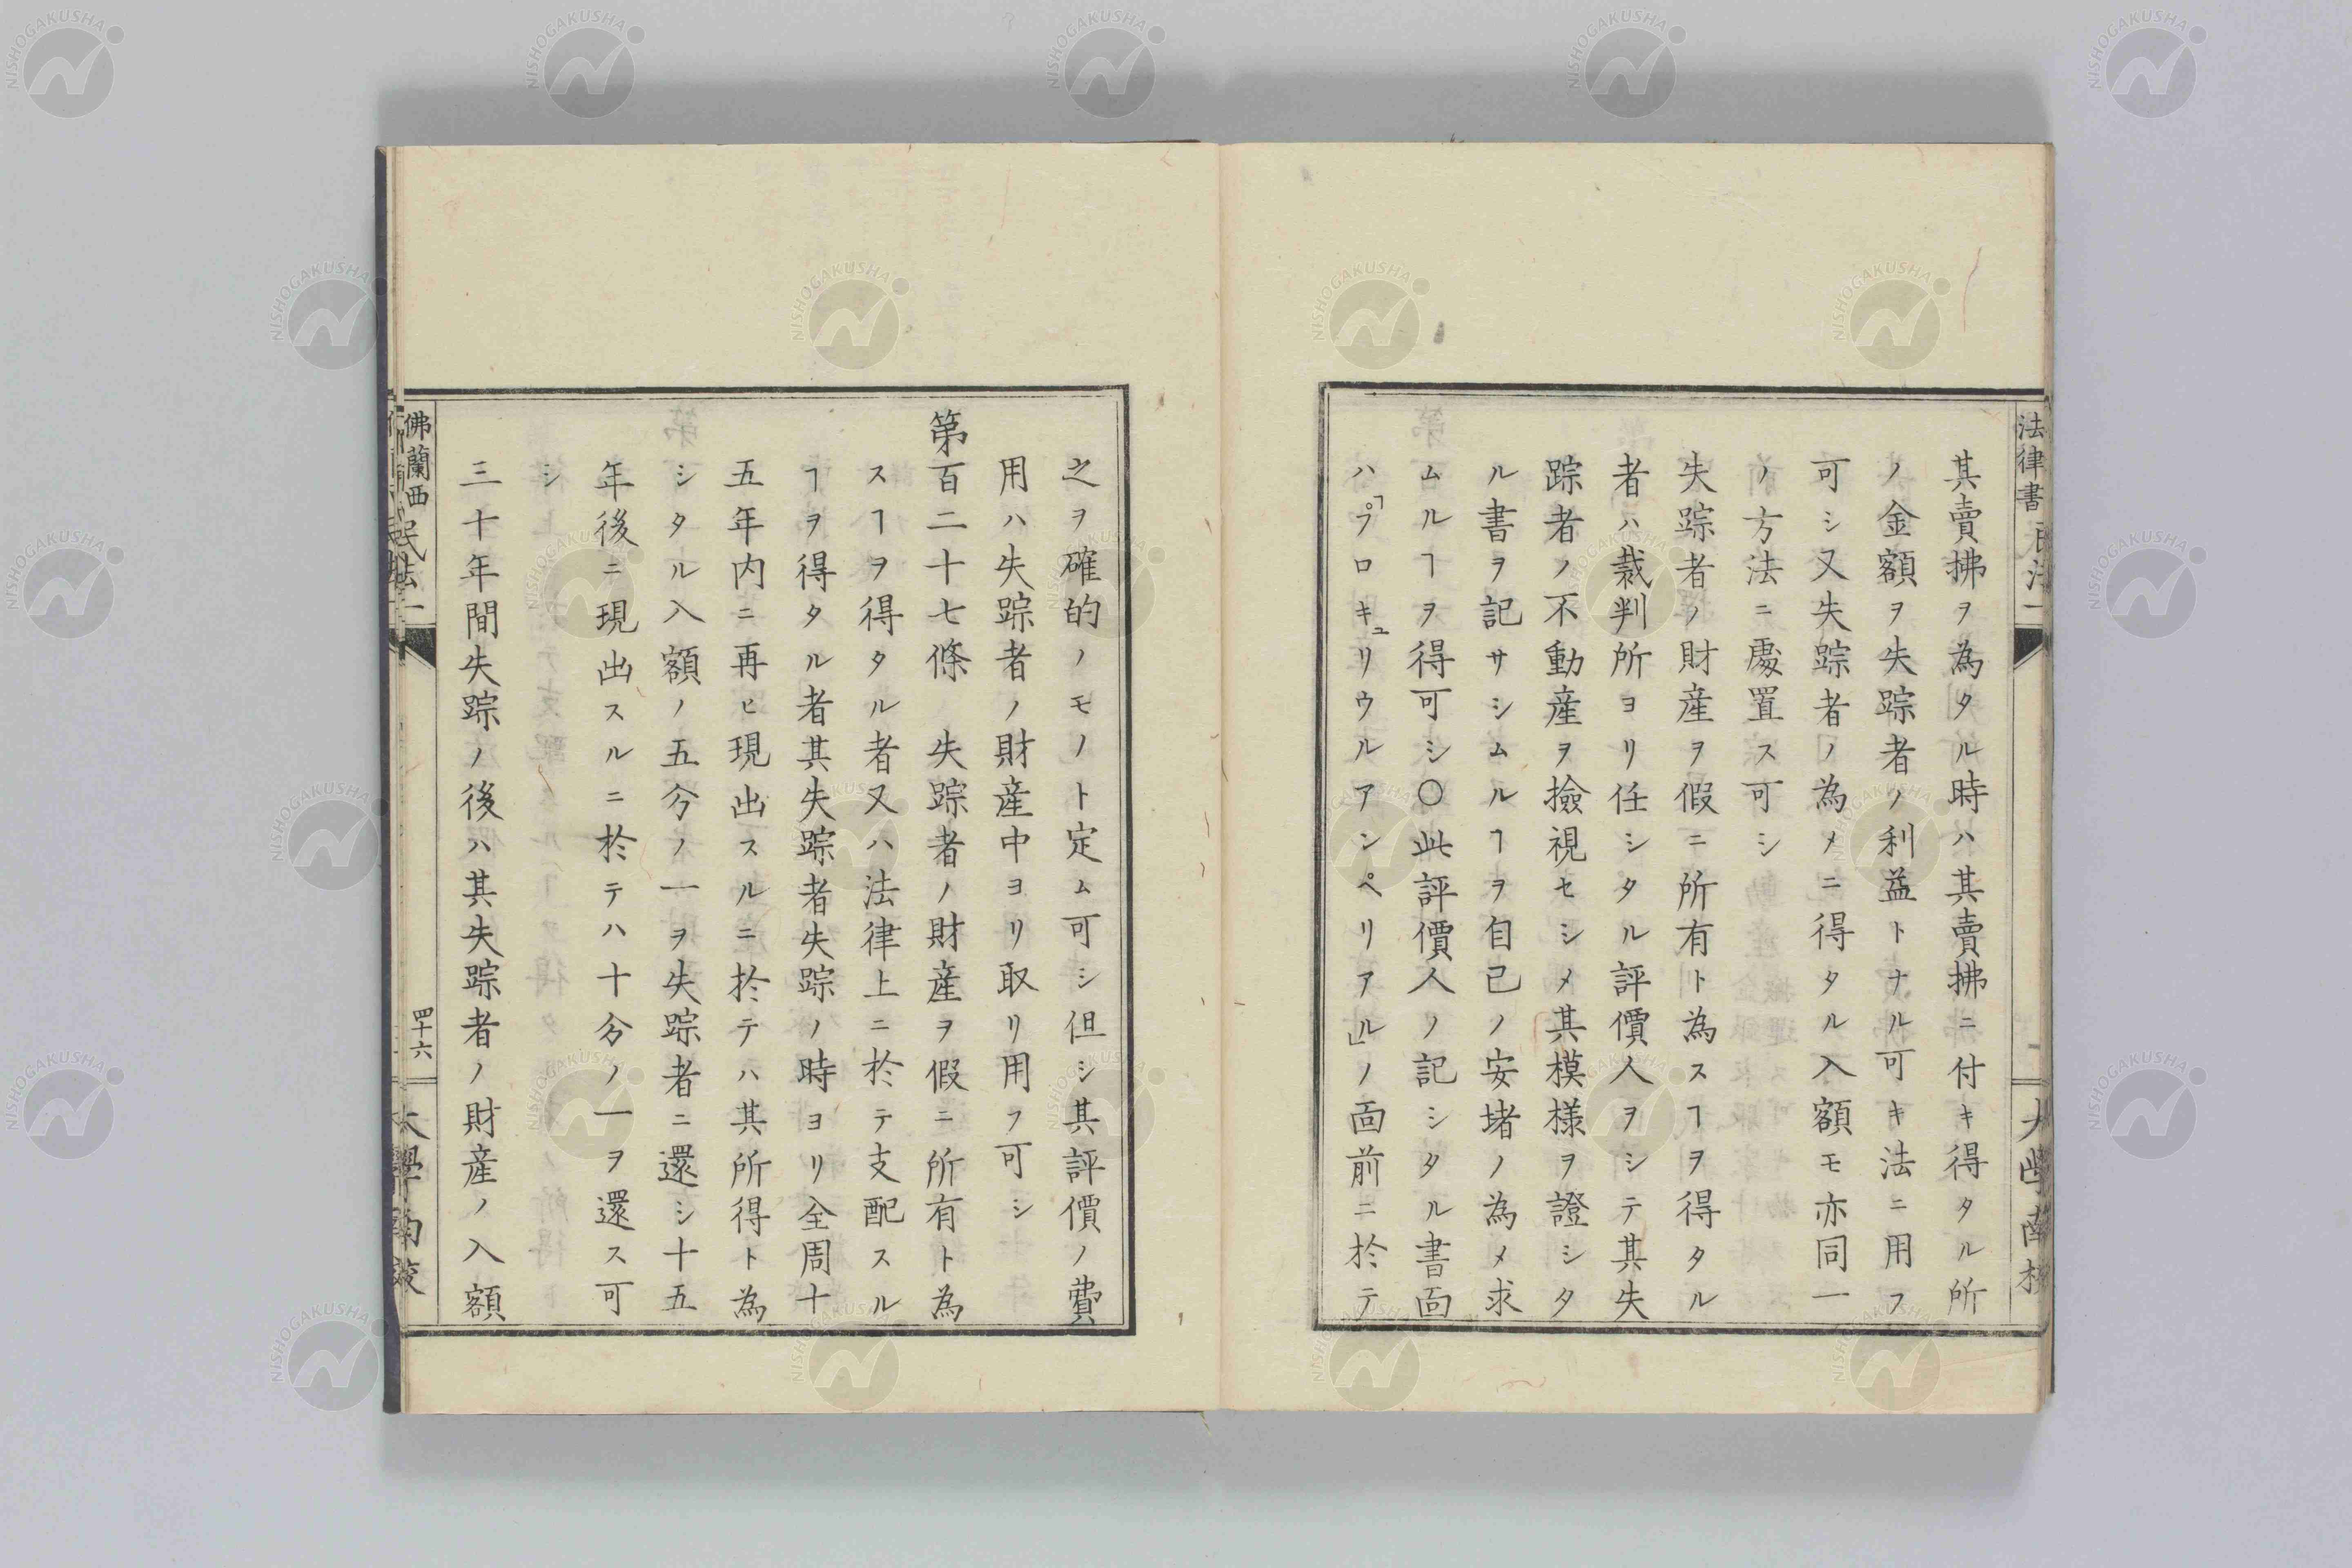 法律書
其賣拂ヲ為タル時ハ其賣拂ニ付キ得タル所
ノ金額ヲ失踪者ノ利益トナル可キ法ニ用フ
可シ又失踪者ノ為メニ得タル入額モ亦同一
ノ方法ニ處置ス可シ
失踪者ノ財産ヲ假ニ所有ト為スヿヲ得タル
者ハ裁判所ヨリ任シタル評價人ヲシテ其失
踪者ノ不動産ヲ撿視セシメ其模様ヲ證シタ
ル書ヲ記サシムルヿヲ自己ノ安堵ノ為メ求
ムルヿヲ得可シ〇此評價人ノ記シタル書面
ハ「プロキュリウルアンペリアル」ノ面前ニ於テ
之ヲ確的ノモノト定ム可シ但シ其評價ノ費
用ハ失踪者ノ財産中ヨリ取リ用フ可シ
第百二十七條 失踪者ノ財産ヲ假ニ所有ト為
スヿヲ得タル者又ハ法律上ニ於テ支配スル
ヿヲ得タル者其失踪者失踪ノ時ヨリ全周十
五年内ニ再ヒ現出スルニ於テハ其所得ト為
シタル入額ノ五分ノ一ヲ失踪者ニ還シ十五
年後ニ現出スルニ於テハ十分ノ一ヲ還ス可
シ
三十年間失踪ノ後ハ其失踪者ノ財産ノ入額
佛蘭西民法一
四十六
大學南校
NISHOGAKUSHA